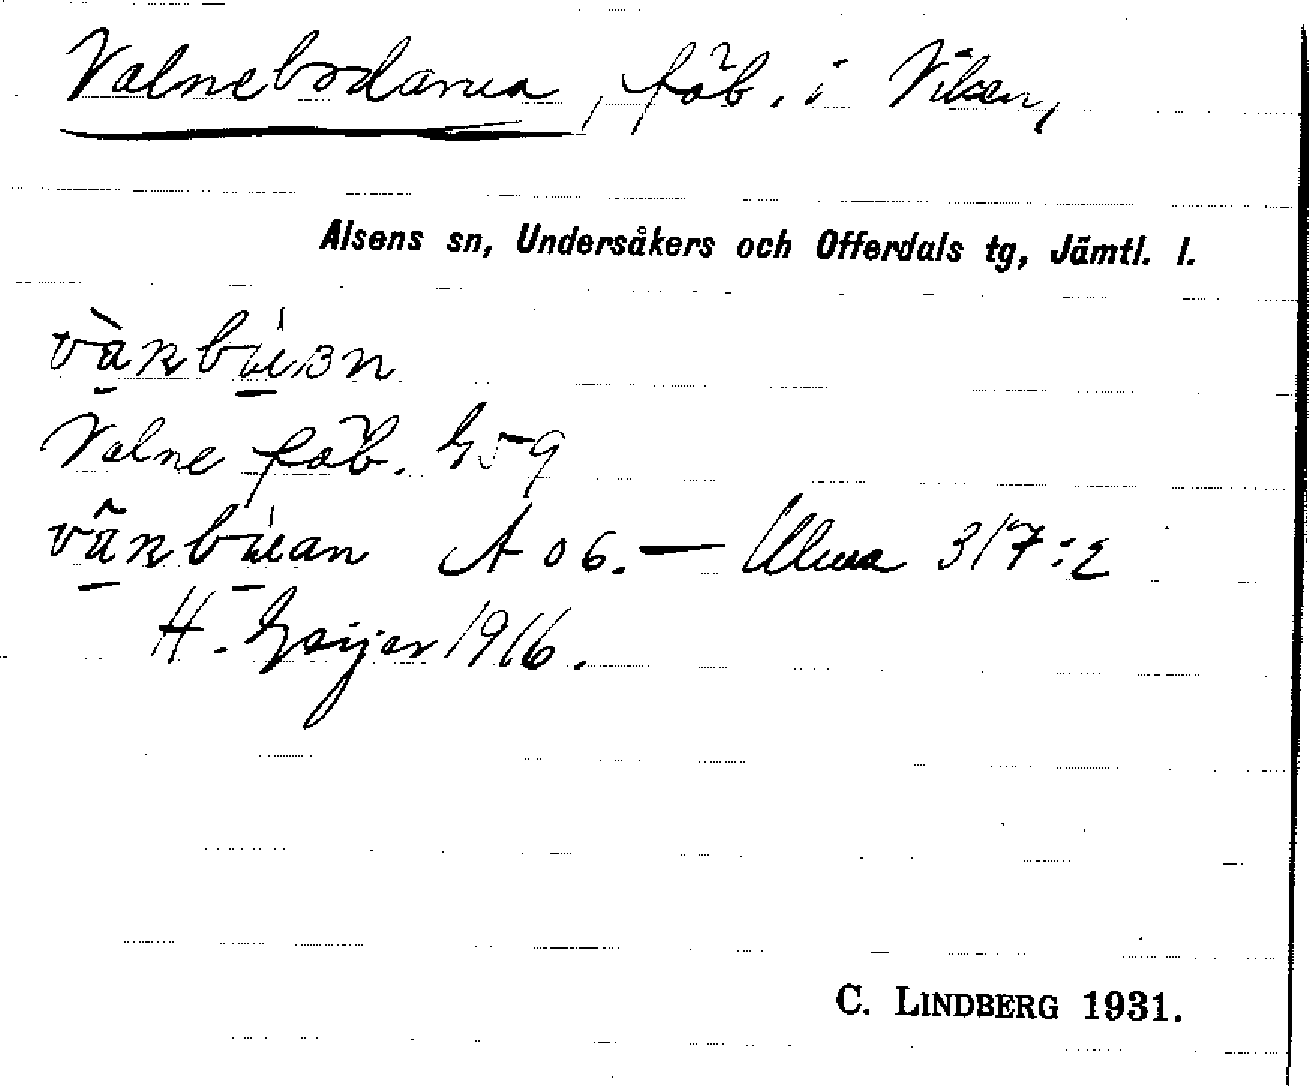 Valnebodarna, fäb. i Viken,
Alsens sn, Undersåkers och Offerdals tg, Jämtl. l.
Valne fäb. G59
A 06. — Ulma 317:2
H. Geijer 1916.
C. LINDBERG 1931.